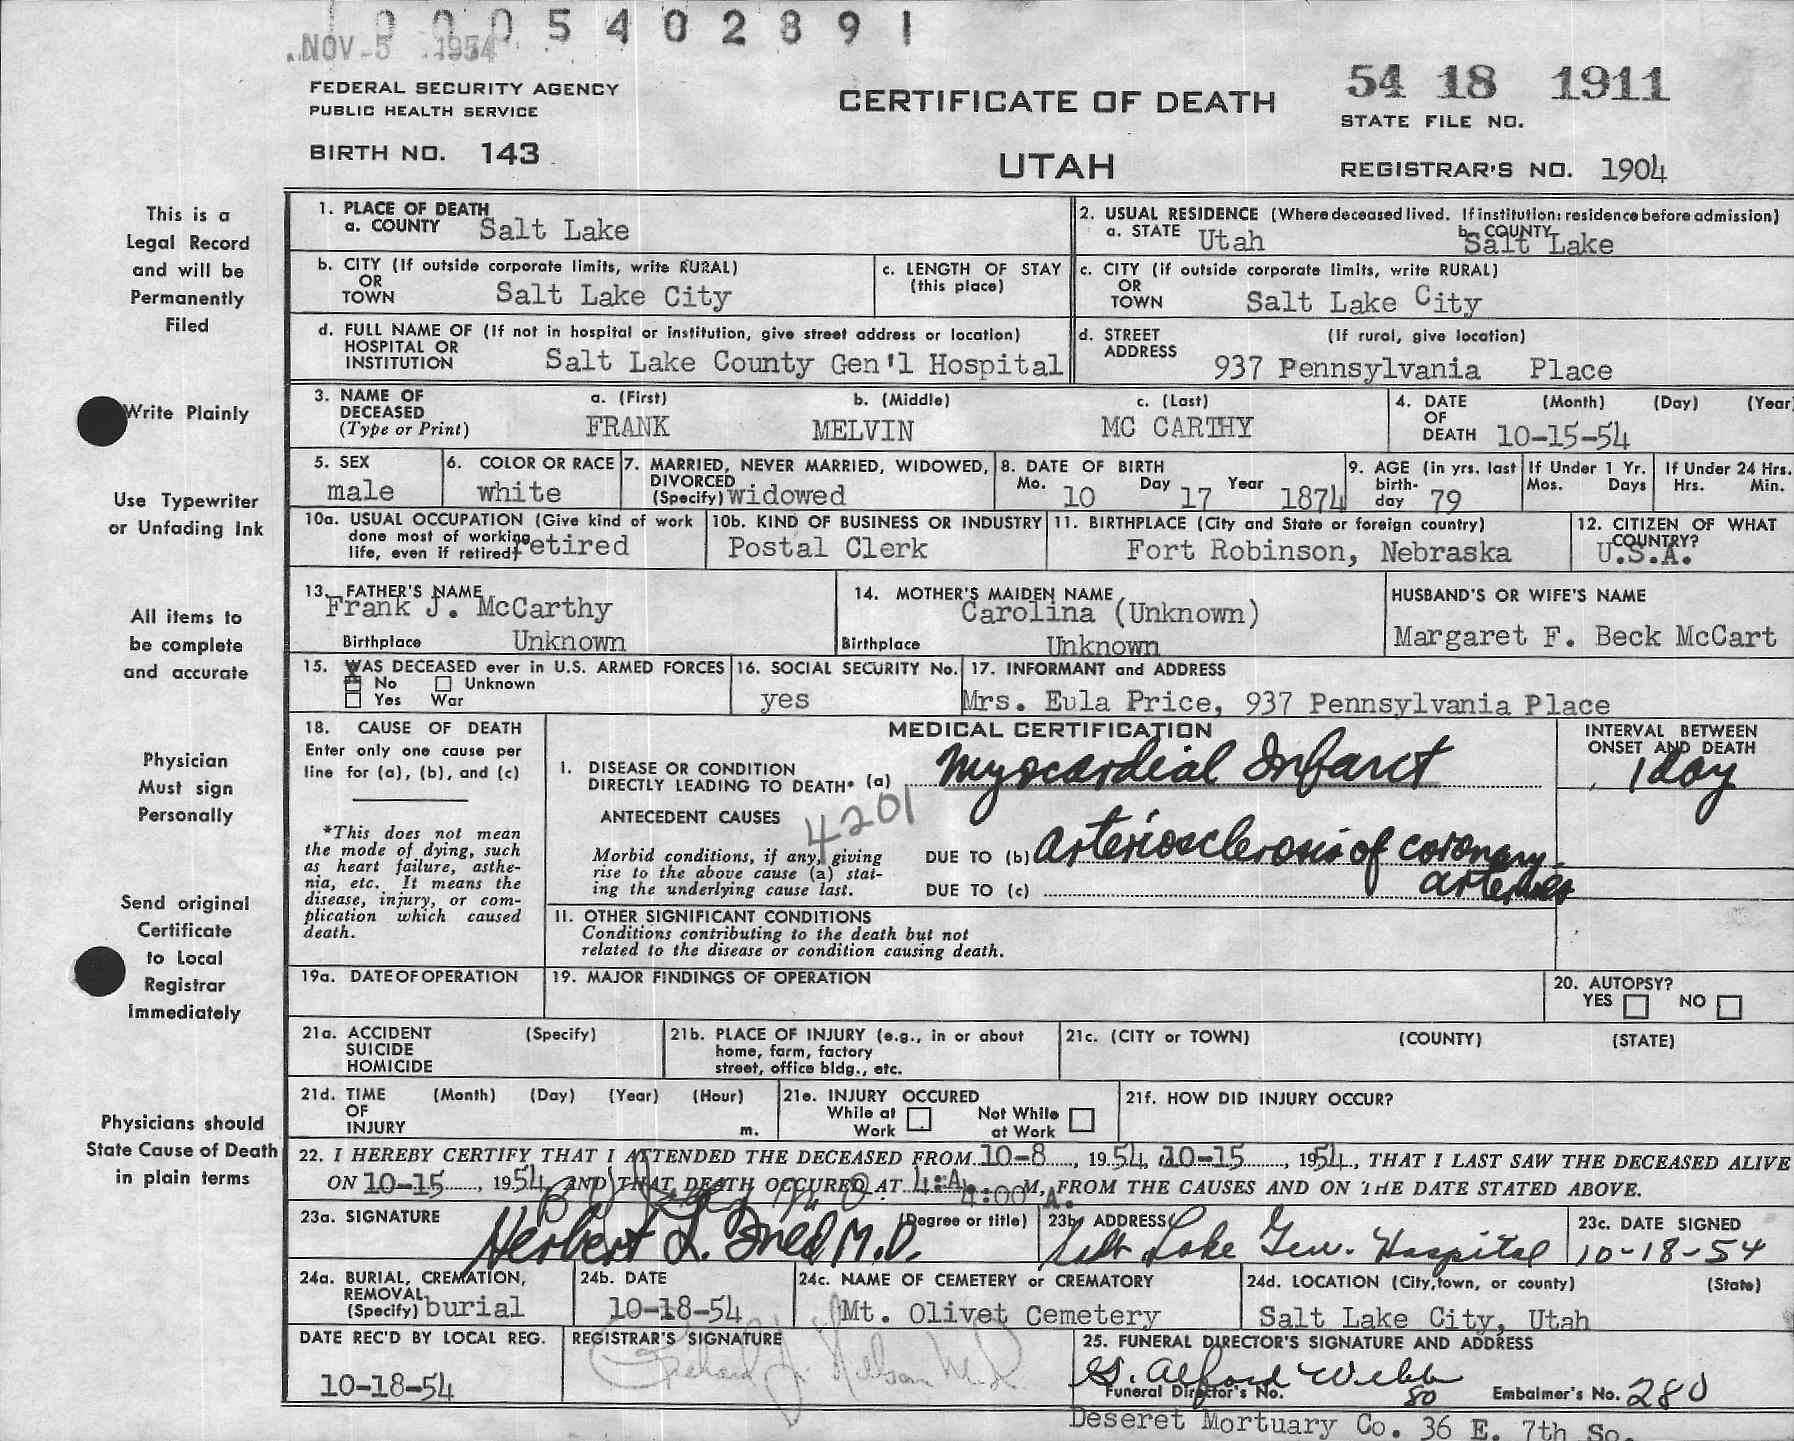 0005402891
NOV-5 1954
FEDERAL SECURITY AGENCY
PUBLIC HEALTH SERVICE
BIRTH NO. 143
CERTIFICATE OF DEATH
UTAH
54 18 1911
STATE FILE NO.
REGISTRAR'S NO. 1904
This is a
Legal Record
and will be
Permanently
Filed
Write Plainly
Use Typewriter
or Unfading Ink
All items to
be complete
and accurate
Physician
Must sign
Personally
Send original
Certificate
to Local
Registrar
Immediately
Physicians should
State Cause of Death
in plain terms
1. PLACE OF DEATH
a. COUNTY Salt Lake
2. USUAL RESIDENCE (Where deceased lived. If institution: residence before admission)
a. STATE Utah b. COUNTY Salt Lake
b. CITY (If outside corporate limits, write RURAL)
OR
TOWN Salt Lake City
c. LENGTH OF STAY
(this place)
c. CITY (If outside corporate limits, write RURAL)
OR
TOWN Salt Lake City
d. FULL NAME OF (If not in hospital or institution, give street address or location)
HOSPITAL OR
INSTITUTION Salt Lake County Gen'l Hospital
d. STREET (If rural, give location)
ADDRESS 937 Pennsylvania Place
3. NAME OF
DECEASED
(Type or Print)
a. (First) b. (Middle) c. (Last)
FRANK MELVIN MC CARTHY
4. DATE (Month) (Day) (Year)
OF
DEATH 10-15-54
5. SEX
male
6. COLOR OR RACE
white
7. MARRIED, NEVER MARRIED, WIDOWED,
DIVORCED
(Specify) widowed
8. DATE OF BIRTH
Mo. 10 Day 17 Year 1874
9. AGE (in yrs. last
birth-
day 79
If Under 1 Yr.
Mos. Days
If Under 24 Hrs.
Hrs. Min.
10a. USUAL OCCUPATION (Give kind of work
done most of working
life, even if retired) retired
10b. KIND OF BUSINESS OR INDUSTRY
Postal Clerk
11. BIRTHPLACE (City and State or foreign country)
Fort Robinson, Nebraska
12. CITIZEN OF WHAT
COUNTRY?
U.S.A.
13. FATHER'S NAME
Frank J. McCarthy
Birthplace Unknown
14. MOTHER'S MAIDEN NAME
Carolina (Unknown)
Birthplace Unknown
HUSBAND'S OR WIFE'S NAME
Margaret F. Beck McCart
15. WAS DECEASED ever in U.S. ARMED FORCES
X No Unknown
Yes War
16. SOCIAL SECURITY No.
yes
17. INFORMANT and ADDRESS
Mrs. Eula Price, 937 Pennsylvania Place
18. CAUSE OF DEATH
Enter only one cause per
line for (a), (b), and (c)
*This does not mean
the mode of dying, such
as heart failure, asthe-
nia, etc. It means the
disease, injury, or com-
plication which caused
death.
MEDICAL CERTIFICATION
I. DISEASE OR CONDITION
DIRECTLY LEADING TO DEATH* (a) Myocardial Infarct
ANTECEDENT CAUSES
4201
Morbid conditions, if any, giving
rise to the above cause (a) stat-
ing the underlying cause last.
DUE TO (b) arteriosclerosis of coronary
arteries
DUE TO (c)
INTERVAL BETWEEN
ONSET AND DEATH
1 day
II. OTHER SIGNIFICANT CONDITIONS
Conditions contributing to the death but not
related to the disease or condition causing death.
19a. DATE OF OPERATION
19. MAJOR FINDINGS OF OPERATION
20. AUTOPSY?
YES NO
21a. ACCIDENT (Specify)
SUICIDE
HOMICIDE
21b. PLACE OF INJURY (e.g., in or about
home, farm, factory
street, office bldg., etc.
21c. (CITY or TOWN) (COUNTY) (STATE)
21d. TIME (Month) (Day) (Year) (Hour)
OF
INJURY m.
21e. INJURY OCCURED
While at Work Not While at Work
21f. HOW DID INJURY OCCUR?
22. I HEREBY CERTIFY THAT I ATTENDED THE DECEASED FROM 10-8, 1954, 10-15, 1954, THAT I LAST SAW THE DECEASED ALIVE
ON 10-15, 1954 AND THAT DEATH OCCURED AT 4:A. 4:00 A. M, FROM THE CAUSES AND ON THE DATE STATED ABOVE.
23a. SIGNATURE (Degree or title)
Herbert L. Fred M.D.
23b. ADDRESS
Salt Lake Gen. Hospital
23c. DATE SIGNED
10-18-54
24a. BURIAL, CREMATION,
REMOVAL
(Specify) burial
24b. DATE
10-18-54
24c. NAME OF CEMETERY or CREMATORY
Mt. Olivet Cemetery
24d. LOCATION (City, town, or county) (State)
Salt Lake City, Utah
DATE REC'D BY LOCAL REG.
10-18-54
REGISTRAR'S SIGNATURE
Nelson M.D.
25. FUNERAL DIRECTOR'S SIGNATURE AND ADDRESS
G. Alford Webb
Funeral Director's No. 80 Embalmer's No. 280
Deseret Mortuary Co. 36 E. 7th So.